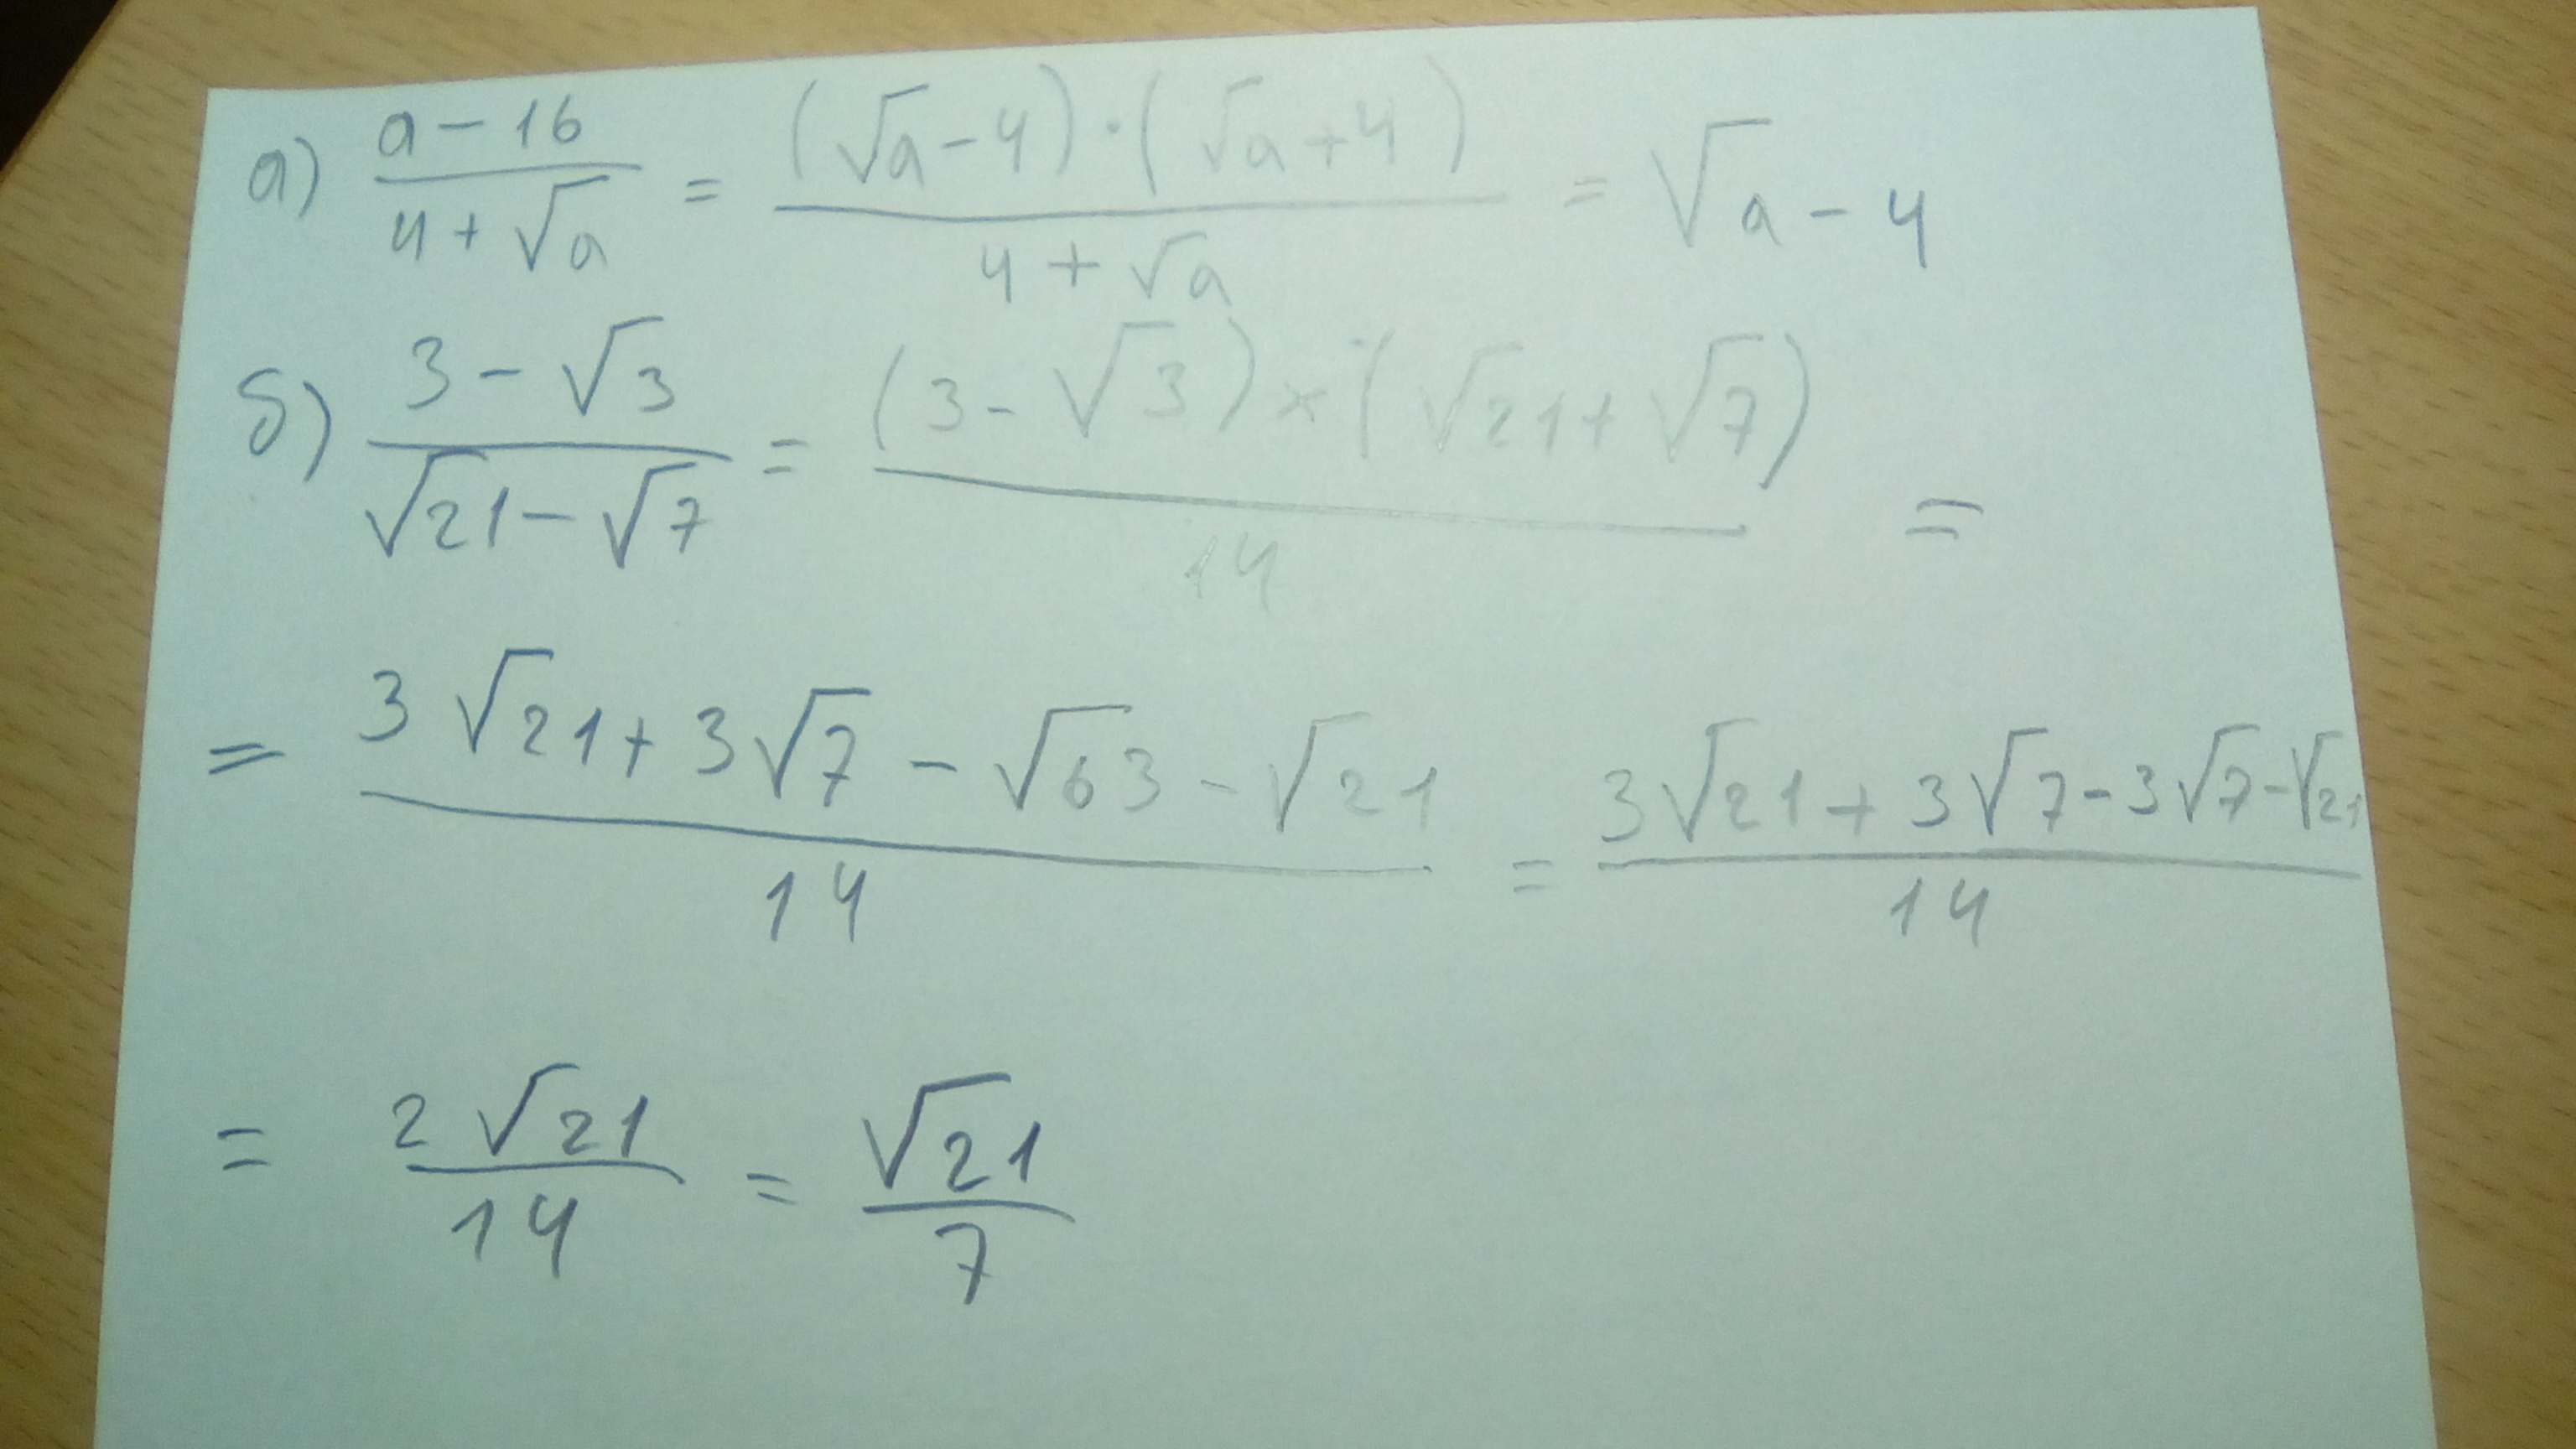 а) (a - 16)/(4 + √a) = ((√a - 4) · (√a + 4))/(4 + √a) = √a - 4
б) (3 - √3)/(√21 - √7) = ((3 - √3) × (√21 + √7))/14 =
= (3√21 + 3√7 - √63 - √21)/14 = (3√21 + 3√7 - 3√7 - √21)/14
= 2√21/14 = √21/7